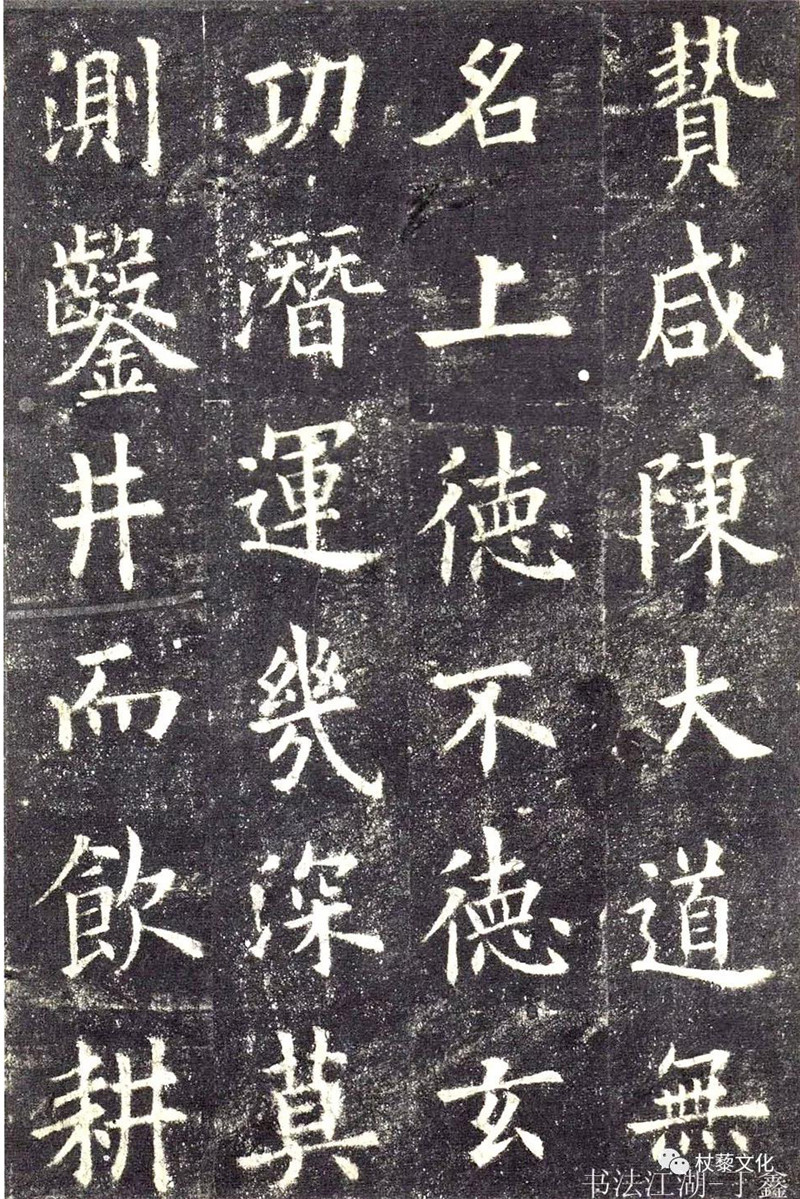 贄咸陳大道無
名上德不德玄
功潛運幾深莫
測鑿井而飲耕
杖藜文化
书法江湖-丁鑫